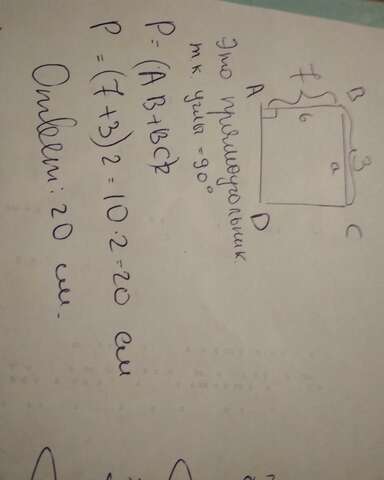 B 3 C
a
7 в
A D
Это прямоугольник
т.к. углы = 90°
P = (AB + BC)2
P = (7 + 3) 2 = 10 · 2 = 20 см
Ответ: 20 см.